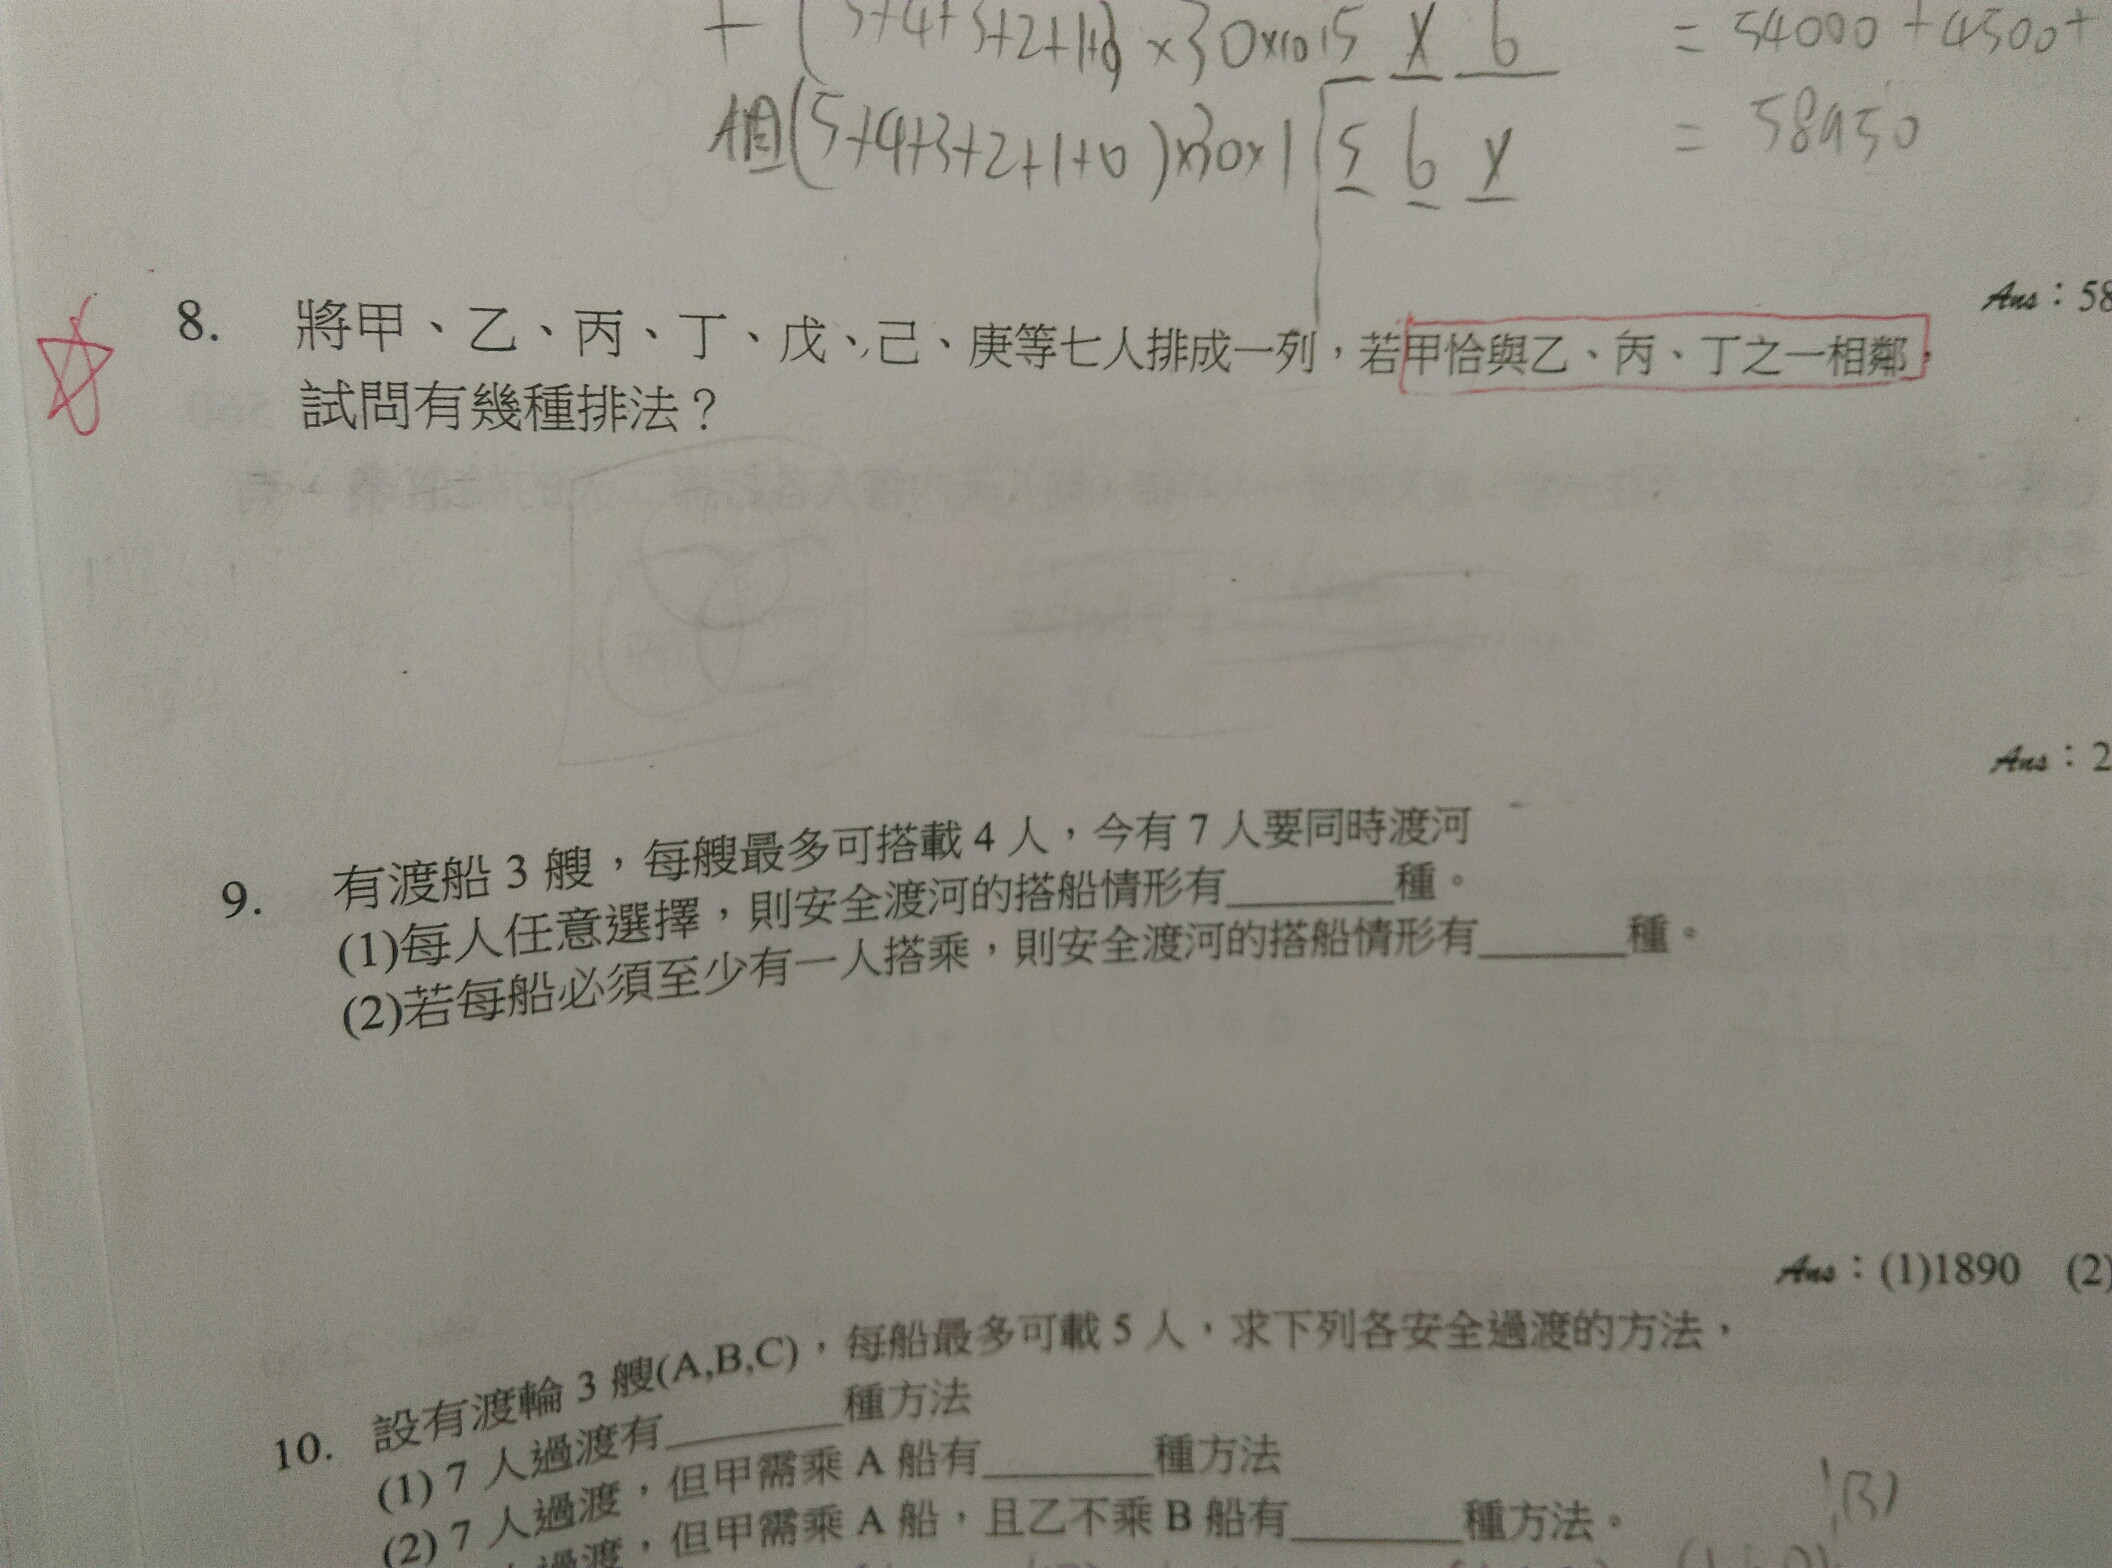 + (5+4+3+2+1+0) ×30×10 5 X 6 = 54000+4500+
個(5+4+3+2+1+0)×30×1 5 6 X = 58950
Ans：58
8. 將甲、乙、丙、丁、戊、己、庚等七人排成一列，若甲恰與乙、丙、丁之一相鄰，
試問有幾種排法？
Ans：2
9. 有渡船 3 艘，每艘最多可搭載 4 人，今有 7 人要同時渡河
(1)每人任意選擇，則安全渡河的搭船情形有______種。
(2)若每船必須至少有一人搭乘，則安全渡河的搭船情形有______種。
Ans：(1)1890 (2)
10. 設有渡輪 3 艘(A,B,C)，每船最多可載 5 人，求下列各安全過渡的方法，
(1) 7 人過渡有______種方法
(2) 7 人過渡，但甲需乘 A 船有______種方法
人過渡，但甲需乘 A 船，且乙不乘 B 船有______種方法。